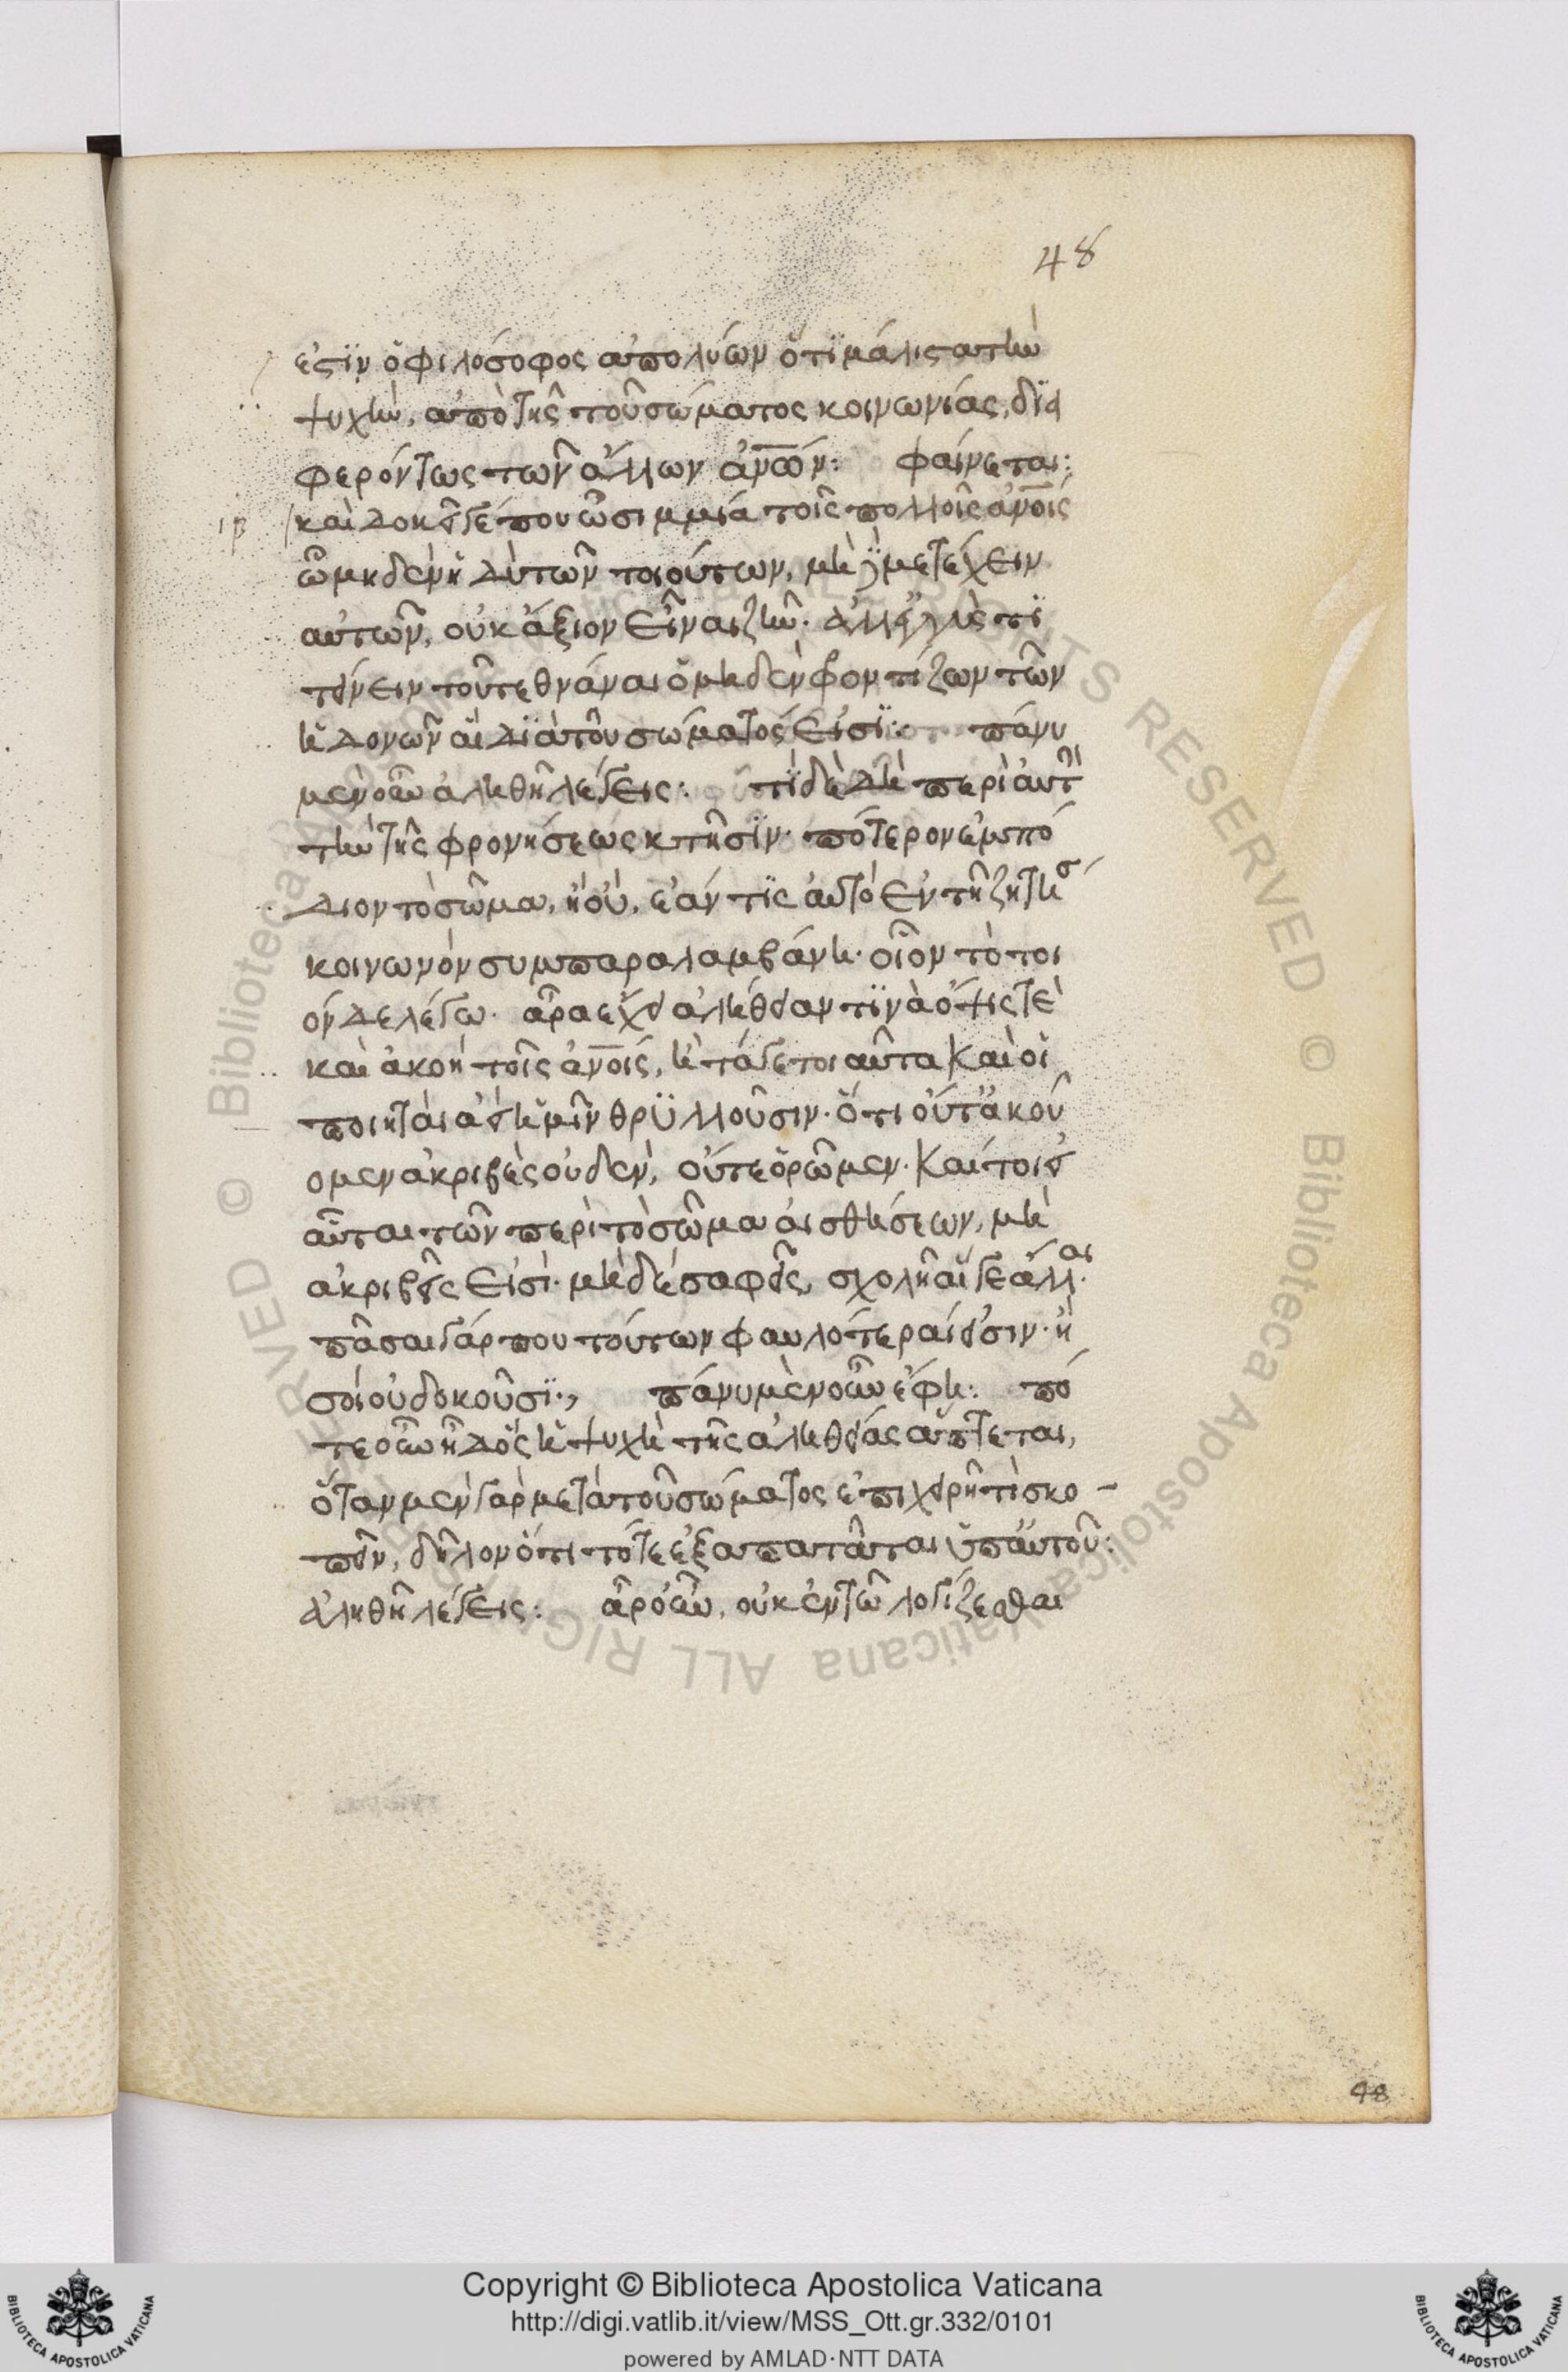 48
ἐστὶν ὁ φιλόσοφος ἀπολύων ὅτι μάλιστα τὴν
ψυχὴν, ἀπὸ τῆς τοῦ σώματος κοινωνίας, δια
φερόντως τῶν ἄλλων ἀν̅ω̅ν: φαίνεται:
ιβ καὶ δοκεῖ γέ που ὦ σιμμία τοῖς πολλοῖς ἀν̅οις
ὧ μηδὲν ἡδὺ τῶν τοιούτων, μὴ δὲ μετέχειν
αὐτῶν, οὐκ ἄξιον εἶναι ζῆν. ἀλλ' ἐγγύς τι
τείνειν τοῦ τεθνάναι ὁ μηδὲν φροντίζων τῶν
ἡδονῶν αἳ διὰ τοῦ σώματός εἰσι: πάνυ
μὲν οὖν ἀληθῆ λέγεις: τί δὲ δὴ περὶ αὐτ
τὴν τῆς φρονήσεως κτῆσιν. πότερον ἐμπό
διον τὸ σῶμα, ἢ οὔ, ἐάν τις αὐτὸ ἐν τῆ ζητήσ
κοινωνὸν συμπαραλαμβάνη. οἷον τὸ τοι
όνδε λέγω. ἆρα ἔχει ἀλήθειαν τινὰ ὄψις τὲ
καὶ ἀκοὴ τοῖς ἀν̅οις, ἢ τάγε τοιαῦτα καὶ οἱ
ποιηταὶ ἀεὶ ἡμῖν θρυλλοῦσιν. ὅτι οὔτ' ἀκού
ομεν ἀκριβὲς οὐδὲν, οὔτε ὁρῶμεν. καίτοι εἰ
αὗται τῶν περὶ τὸ σῶμα αἰσθήσεων, μὴ
ἀκριβεῖς εἰσὶ. μὴ δὲ σαφεῖς, σχολῆ αἵ γε ἄλλαι.
πᾶσαι γάρ που τούτων φαυλότεραί εἰσιν. ἢ
σοὶ οὐ δοκοῦσι., πάνυ μὲν οὖν ἔφη: πό
τε οὖν ἦ δ' ὃς ἡ ψυχὴ τῆς ἀληθείας ἅπτεται,
ὅταν μὲν γὰρ μετὰ τοῦ σώματος ἐπιχειρῆ τὶ σκο-
πεῖν, δῆλον ὅτι τότε ἐξαπατᾶται ὑπ' αὐτοῦ:
ἀληθῆ λέγεις: ἆρ' οὖν, οὐκ ἐν τῶ λογίζεσθαι
48
Copyright © Biblioteca Apostolica Vaticana
http://digi.vatlib.it/view/MSS_Ott.gr.332/0101
powered by AMLAD·NTT DATA
BIBLIOTECA APOSTOLICA VATICANA
BIBLIOTECA APOSTOLICA VATICANA
© Biblioteca Apostolica Vaticana ALL RIGHTS RESERVED © Biblioteca Apostolica Vaticana ALL RIGHTS RESERVED